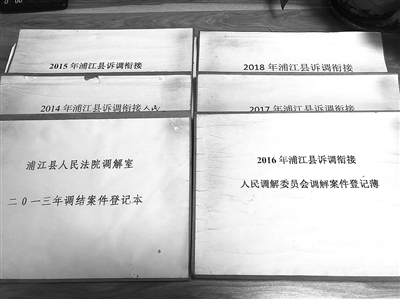 2015 年浦江县诉调衔接
2018 年浦江县诉调衔接
2014 年浦江县诉调衔接人民
2017 年浦江县诉调衔接
浦江县人民法院调解室
二0一三年调结案件登记本
2016 年浦江县诉调衔接
人民调解委员会调解案件登记簿